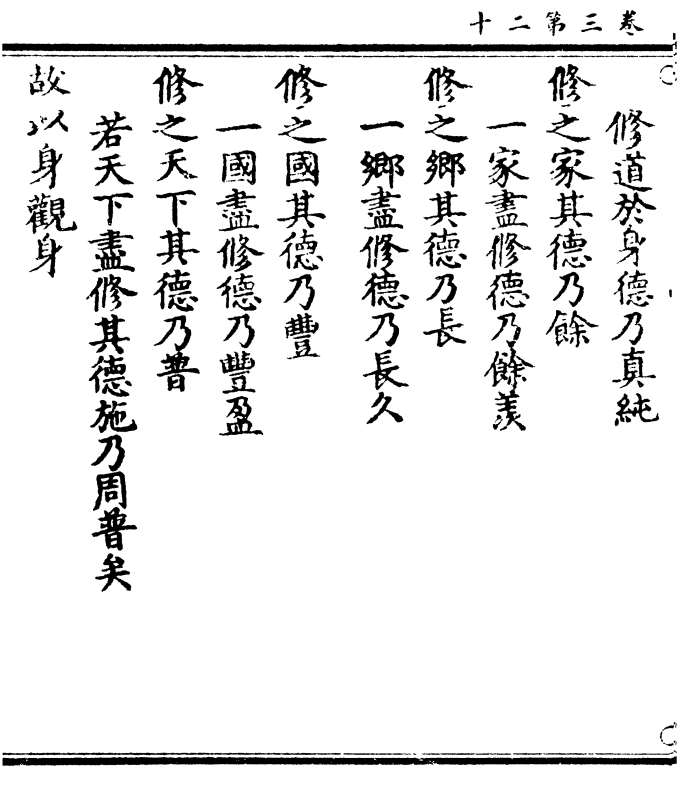 卷三第二十
修道於身德乃真純
修之家其德乃餘
一家盡修德乃餘羨
修之鄉其德乃長
一鄉盡修德乃長久
修之國其德乃豐
一國盡修德乃豐盈
修之天下其德乃普
若天下盡修其德施乃周普矣
故以身觀身